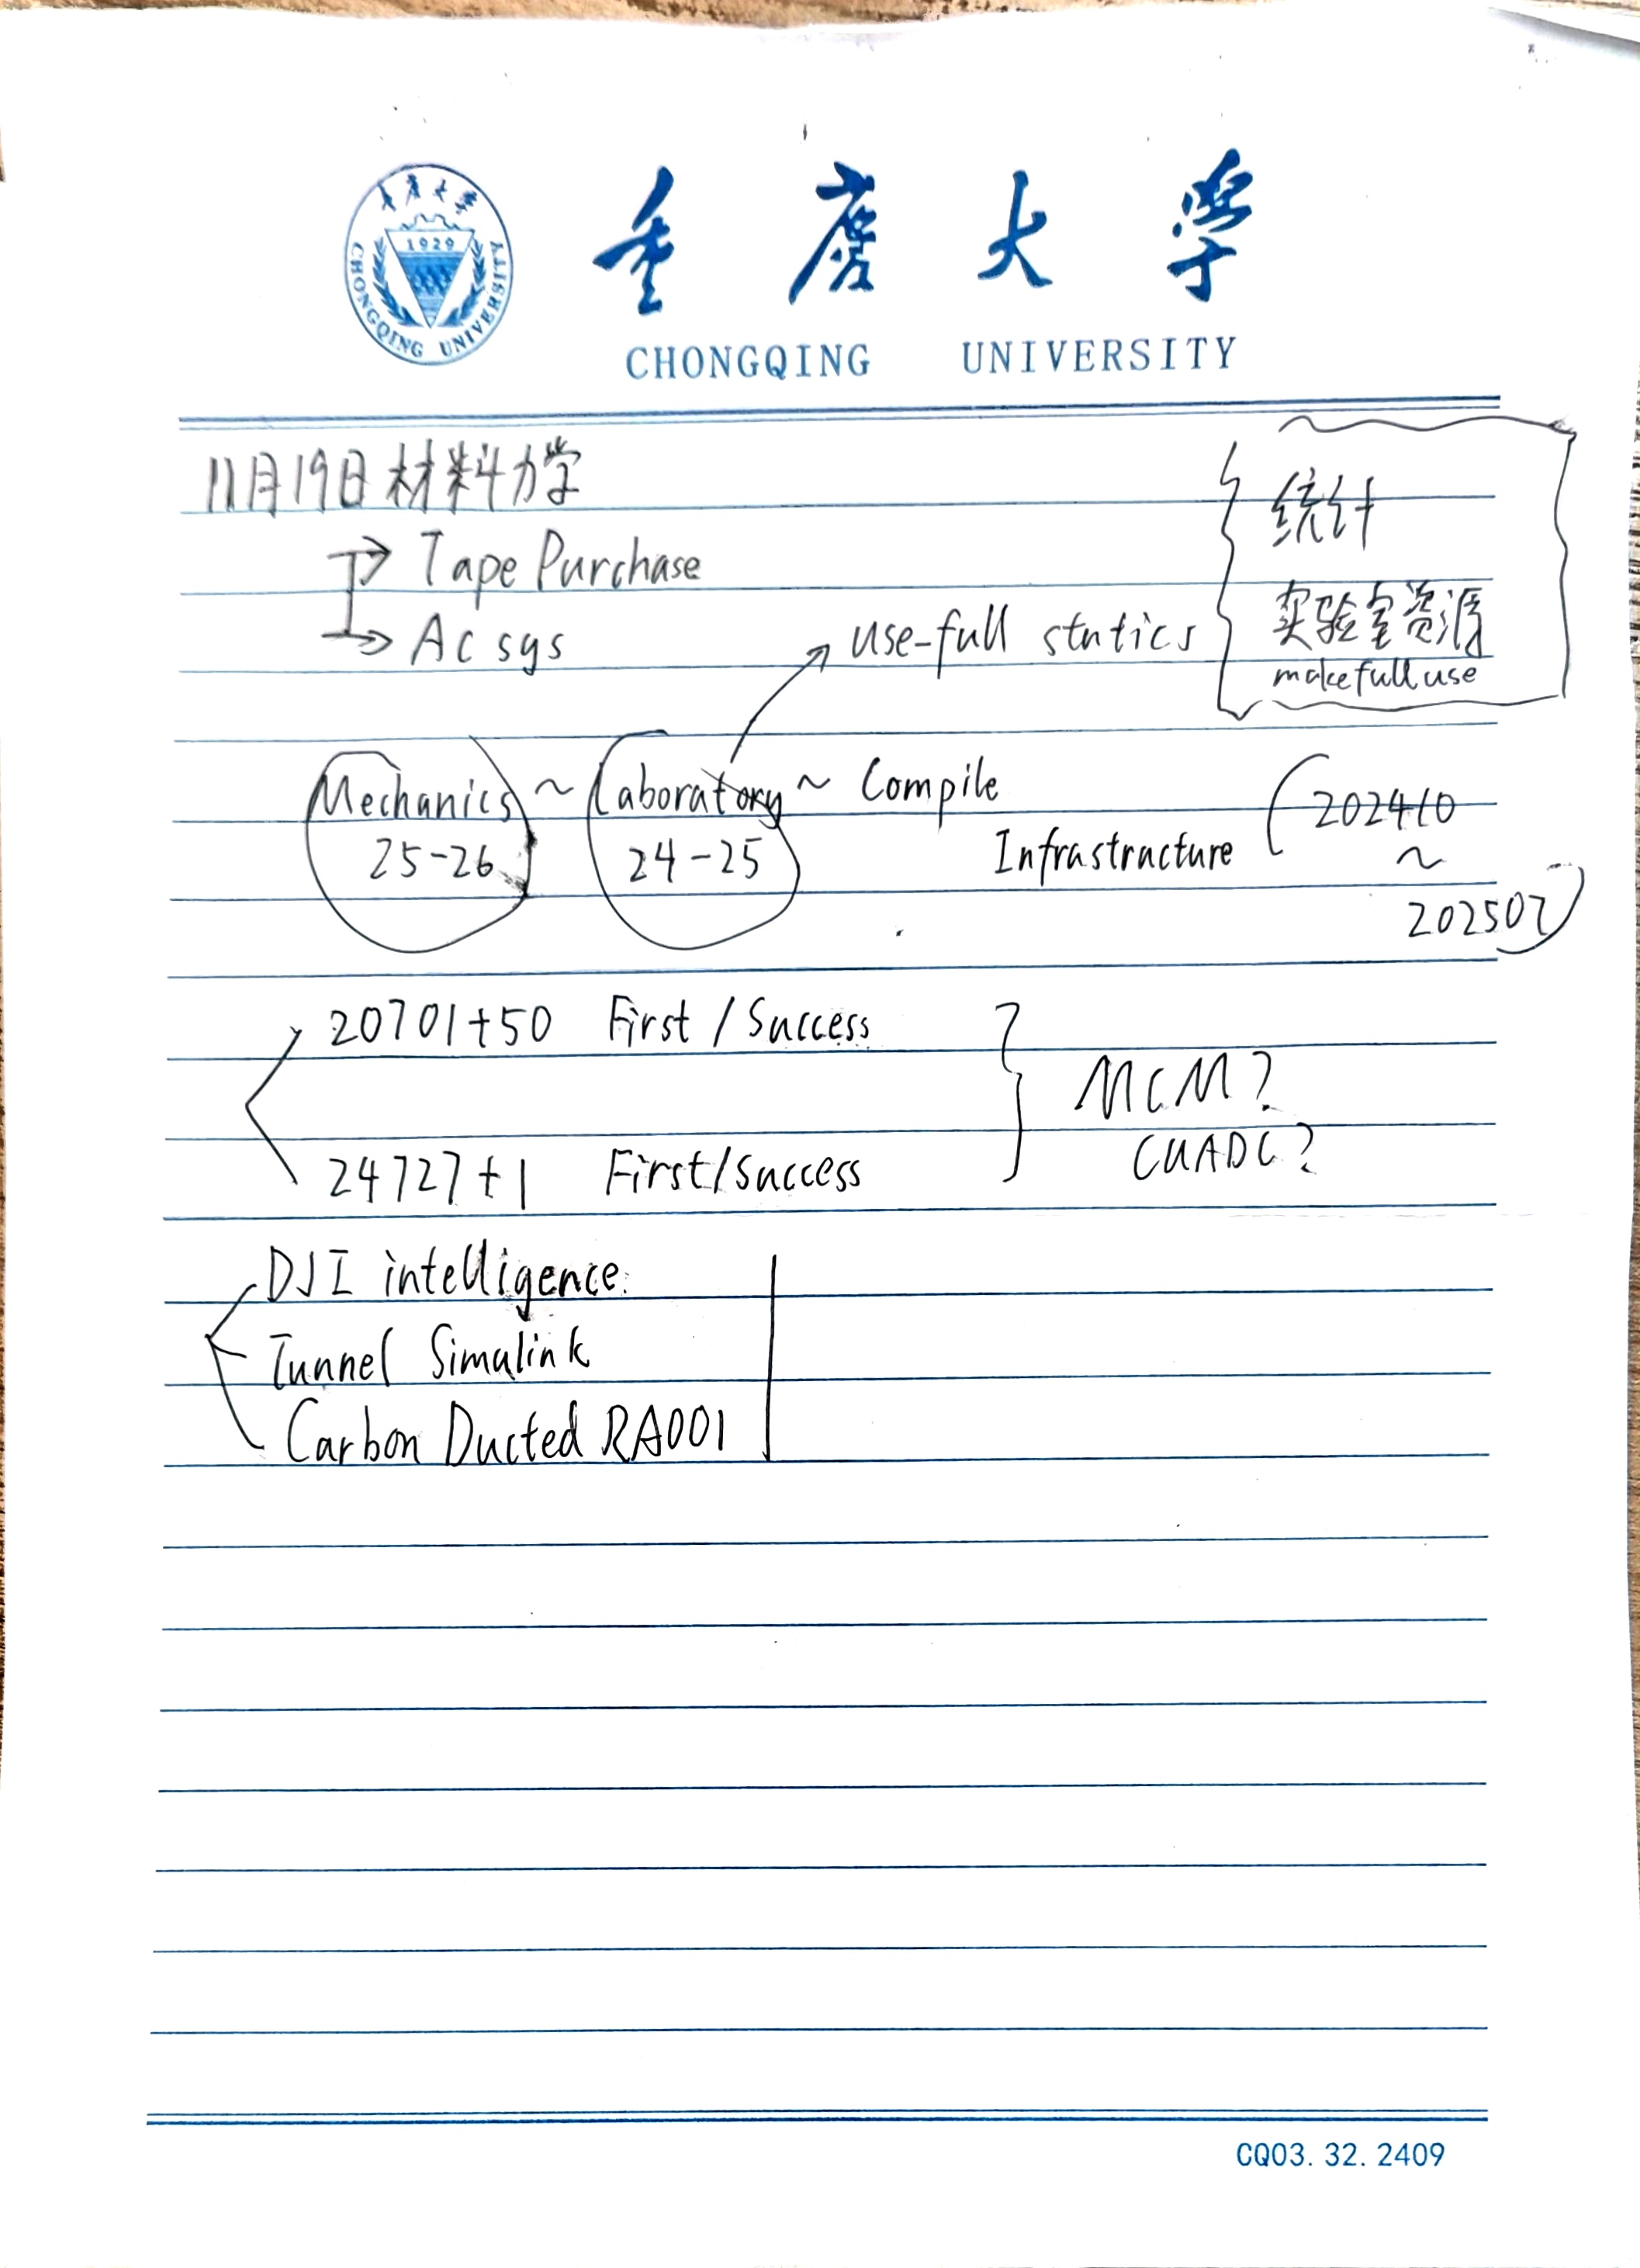 重庆大学
1929
CHONGQING UNIVERSITY
重庆大学
CHONGQING UNIVERSITY
11月19日材料力学
Tape Purchase
Ac sys
use-full statics
统计
实验室资源
make full use
Mechanics ~ Laboratory ~ Compile
25-26
24-25
Infrastructure
202410
~
202507
20701+50 First / Success
MCM?
CUADC?
24727+1 First/Success
DJI intelligence.
Tunnel Simulink
Carbon Ducted RA001
CQ03.32.2409